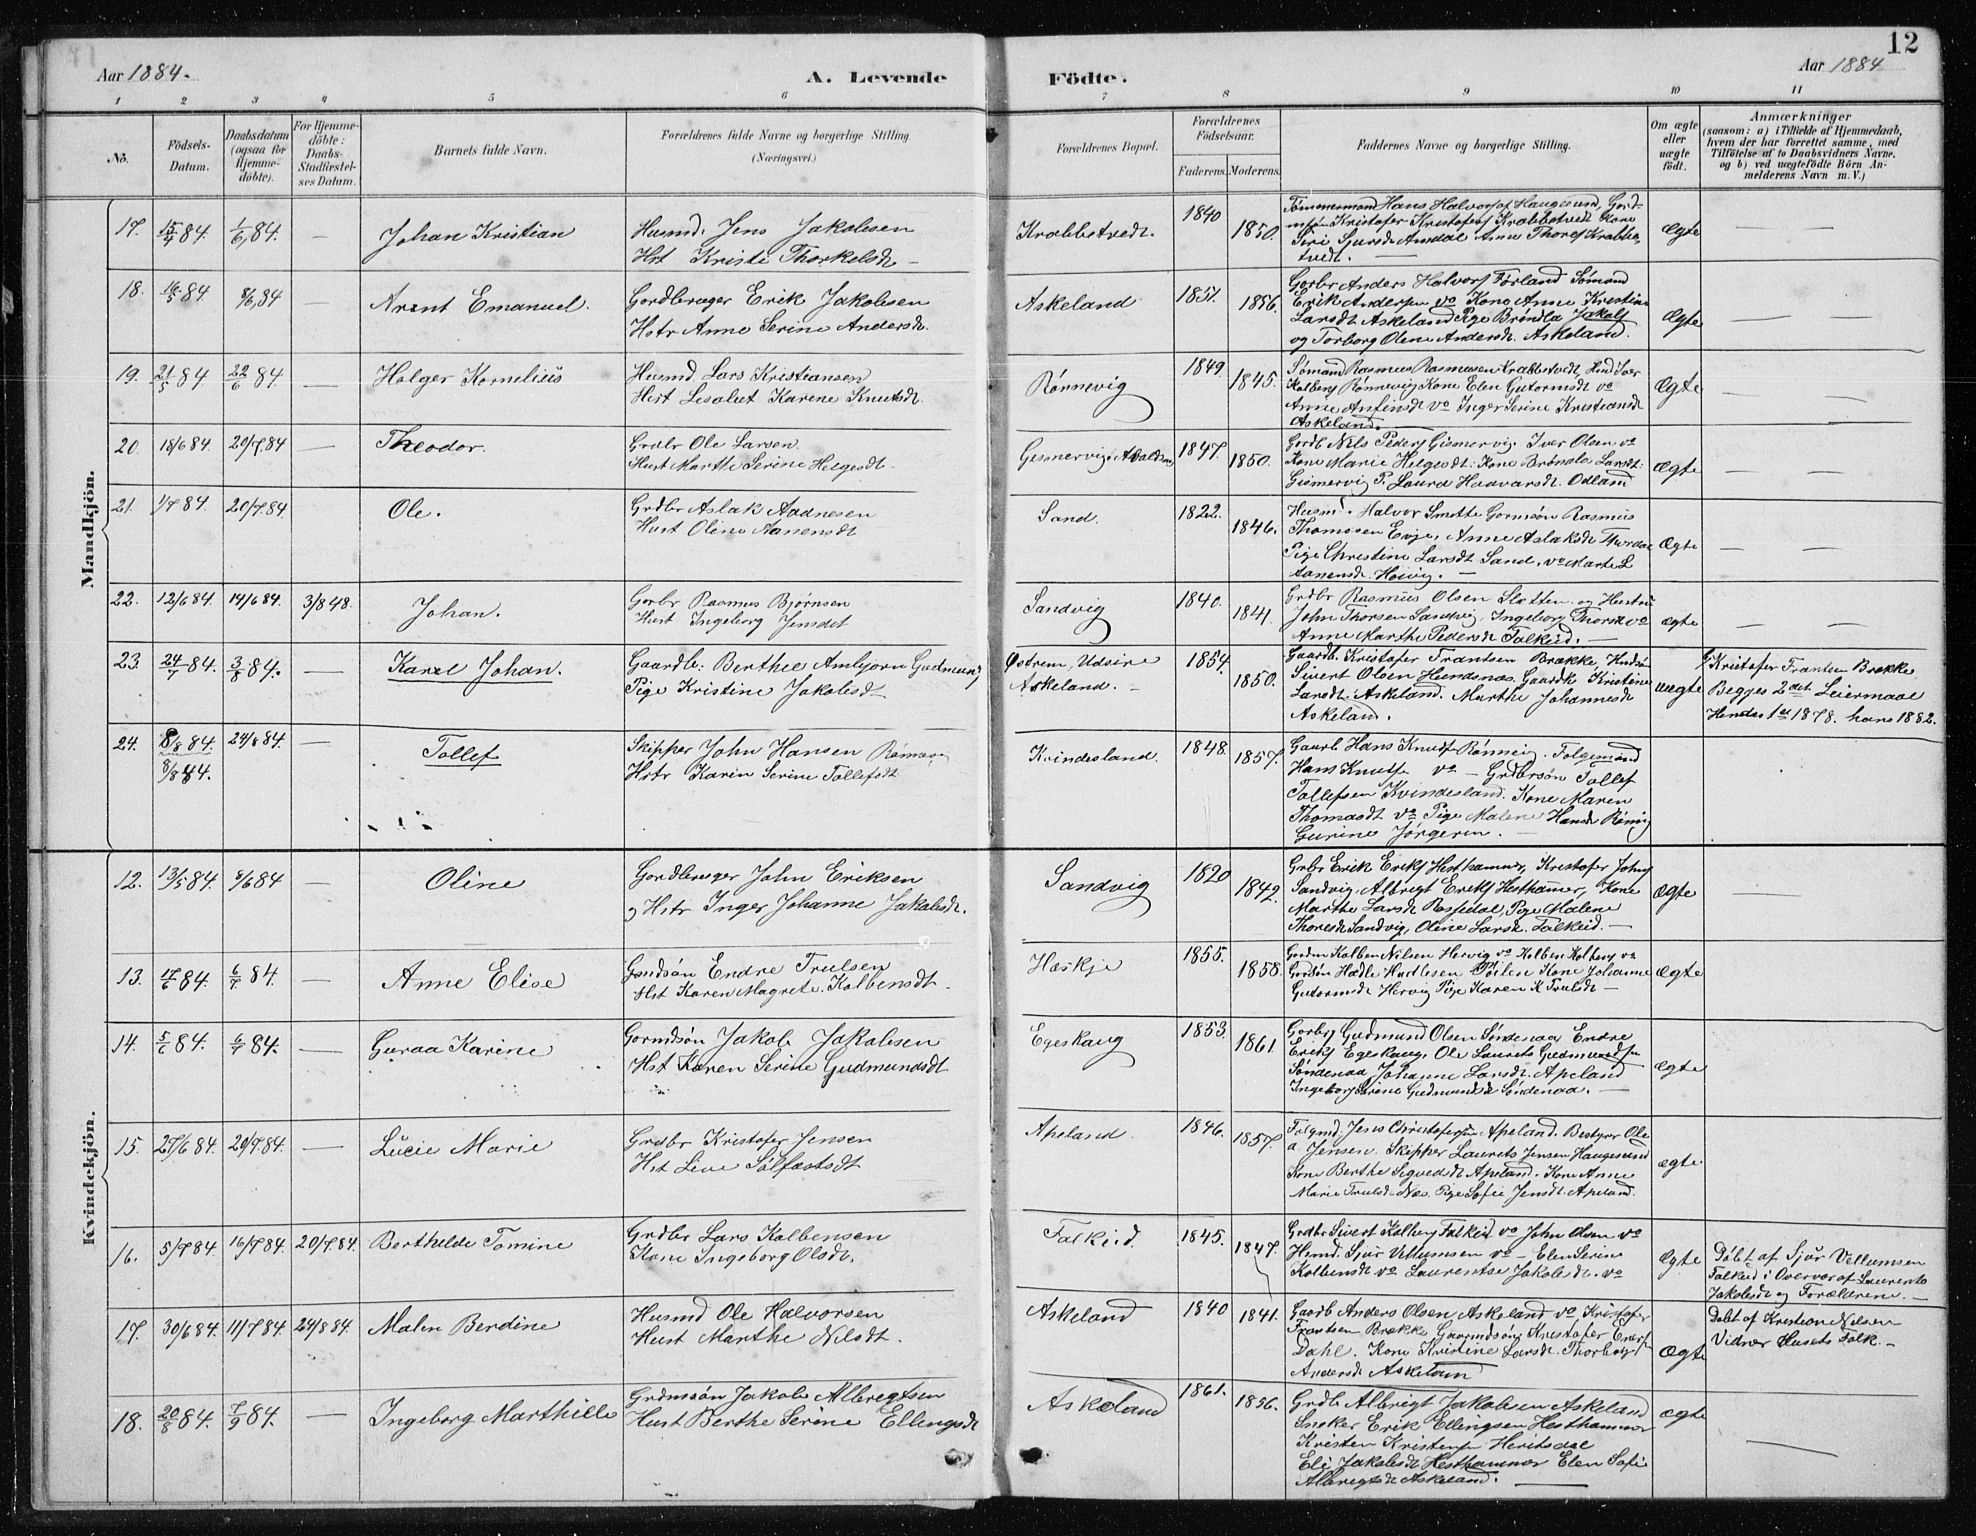 12
Aar 1884.
A. Levende Födte.
Aar 1884
1 2 3 4 5 6 7 8 9 10 11
No.
Födsels-
Datum.
Daabsdatum
(ogsaa for
Hjemme-
döbte).
For Hjemme-
döbte:
Daabs-
Stadfæstel-
ses Datum.
Barnets fulde Navn.
Forældrenes fulde Navne og borgerlige Stilling
(Næringsvei.)
Forældrenes Bopæl.
Forældrenes
Födselsaar.
Faderens. Moderens.
Faddernes Navne og borgerlige Stilling.
Om ægte
eller
uægte
födt.
Anmærkninger
(saasom: a) i Tilfælde af Hjemmedaab,
hvem der har forrettet samme, med
Tilföielse af to Daabsvidners Navne,
og b) ved uægtefödte Börn An-
melderens Navn m. V.)
Mandkjön.
17. 15/4 84. 1/6 84. — Johan Kristian
Husmd. Jens Jakobsen
Hst Kriste Thorkelsdt —
Krabbetvedt. 1840 1850.
Tømmermand Hans Halvorsf Haugesund, Gord-
msøn Kristofer Kristofersf Krabbetvedt Kone
Siri Sjursdt Amdal Anne Thoresf Krabbe-
tvedt. —
Ægte
18. 16/5 84 8/6 84 — Arent Emanuel.
Gordbruger Erik Jakobsen
Hstr Anne Serine Andersdt.
Askeland 1851. 1856.
Gorbr Anders Halvorsf Førland Sømand
Erik Andersen vo Kone Anne Kristine
Larsdt Askeland Pige Brøndla Jakobsf
og Torborg Oline Andersdt. Askeland.
Ægte — —
19. 21/5 84 22/6 84 — Holger Kornelius
Husmd. Lars Kristiansen
Hst Lisabet Karine Knutsdt.
Rønnevig 1849. 1845.
Sømand Rasmus Rasmusen Krabbetvedt, Hmd Iver
Kolbensf Rønnevig Kone Elen Gutormsdt vo
Anne Anfinsdt vo Inger Serine Kristiansdt
Askeland.
Ægte — —
20. 18/6 84 20/7 84 — Theodor.
Grdbr Ole Larsen
Hust Marthe Serine Helgesdt.
Gismervig, Avaldsn 1847. 1850.
Gordb Nils Pedersf Gismervig, Iver Olsen vo
Kone Marie Helgesdt: Kone Brønla Larsdt:
Gismervig P. Laura Hovarsdt. Odland
Ægte — —
21. 1/7 84 20/7 84. Ole.
Grdbr Aslak Aadnesen
Hust Oline Aanensdt
Sand. 1822. 1846.
Husmd. Halvor Smette Gormsøn Rasmus
Thomasen Evje, Anne Aslaksdt Thordal
Pige Christine Larsdt Sand, vo Marte L
Aanensdt. Hoivig. —
Ægte — —
22. 12/6 84. 14/6 84. 3/8 48. Johan.
Gorbr Rasmus Bjørnsen
Hust Ingeborg Jensdt
Sandvig 1840. 1841.
Grdbr Rasmus Olsen Sletten og Hustru
John Thorsen Sandvig, Ingeborg Thorsdt vo
Anne Marthe Pedersdt Falkeid. —
ægte — —
23. 24/7 84. 3/8 84. — Karel Johan.
Gaardb: Berthel Ambjørn Gudmunsf
Pige Kristine Jakobsdt
Østrem, Udsire
Askeland. — 1854. 1850.
Gaardb. Kristofer Frantsen Brække, Husm
Sivert Olsen Hundsnæs. Gaardk Kristine
Larsdt. Askeland. Marthe Johannesdt
Askeland.
uægte
G Kristofer Frantsen Brække
Begges 2det Leiermaal
Hendes 1ste 1878. hans 1882.
24. 8/8 84. 24/8 84. — Tollef
8/8 84.
Skipper John Hansen Rønevig
Hstr Karin Serine Tollefsdt
Kvindesland. 1848. 1857.
Gaarb Hans Knutsf Rønneig. Følgemand
Hans Knutsf vo — Grdbrsøn Tollef
Tollefsen Kvindesland. Kone Maren
Thomasdt vo Pige Malene Hansdt Rønvig
Gurine Jørgersen. —
Kvindekjön.
12. 13/5 84. 8/6 84 — Oline
Gordbruger John Eriksen
og Hstr Inger Johanne Jakobsdt.
Sandvig 1820 1842.
Grbr Erik Eriksf Hesthammer, Kristofer Johnsf
Sandvig, Albregt Eriksf Hesthamer, Kone
Marthe Larsdt Rossedal, Pige Malene
Thoresdt Sandvig, Oline Larsdt. Falkeid. —
Ægte —
13. 17/6 84. 6/7 84 — Anne Elise
Gordsøn Endre Trulsen
Hst Karen Magrete Kolbensdt —
Hæskje 1855. 1858.
Gordm Kolben Nilsen Hervig vo Kolben Kolbensf vo
Gordsøn Hadle Hadlesen Førlen Kone Johanne
Gudormsdt Hervig Pige Karen K Trulsdt —
Ægte —
14. 5/6 84. 6/7 84. — Guraa Karine
Gormdsøn Jakob Jakobsen
Hst Karen Serine Gudmundsdt
Egeskaug 1853. 1861.
Gorbr Gudmund Olsen Søndenaa, Endre
Eriksf Egeskaug, Ole Laurits Gudmundsen
Søndenaa Johanne Larsdt. Apeland
Ingeborg Serine Gudmundsdt Søndenaa. —
Ægte
15. 27/6 84. 20/7 84. — Lucie Marie
Grdbr Kristofer Jensen
Hst Live Sølfæstsdt
Apeland. 1846. 1857.
Følgmd. Jens Christofersen Apeland. Bestyrer Ole
A Jensen. Skipper Laurits Jensen Haugesund
Kone Berthe Sigvedsdt Apeland. Kone Anne
Marie Trulsdt Næs. Pige Sofie Jensdt. Apeland.
Ægte
16. 5/7 84. 16/7 84. 20/7 84. Berthilde Tomine
Grdbr Lars Kolbensen
Kone Ingeborg Olsdt.
Falkeid. 1845. 1847.
Grdbr Sivert Kolbensf Falkeid vo John Olsen vo
Hsmd. Sjur Vellumsen vo — Elen Serine
Kolbensdt vo Laurentse Jakobsdt. vo
Ægte
Døbt af Sjur Vellumsen
Falkeid i Overvær af Laurents
Jakobsdt og Forældrene. —
17. 30/6 84. 11/7 84 24/8 84. Malen Berdine
Husmd Ole Halvorsen
Hust Marthe Nilsdt.
Askeland 1840 1841.
Gaardb Anders Olsen Askeland vo, Kristofer
Frantsen Brække, Gaarmdsøn Kristofer Enersf
Dahl. Kone Kristine Larsdt. Thorborg
Andersdt Askeland
Ægte
Døbt af Kristian Nilsen
Vidner Husets Folk —
18. 20/8 84. 7/9 84. — Ingeborg Marthille
Grdmsøn Jakob Albregtsen
Hust Berthe Serine Ellingsdt
Askeland 1861. 1856.
Grdb Albregt Jakobsen Askeland
Sneker Erik Ellingsen Hesthammer
Kristen Kristensen Heritsdal
Eli Jakobsdt Hesthammer Elen Sofie
Albregtsdt Askeland. —
Ægte —